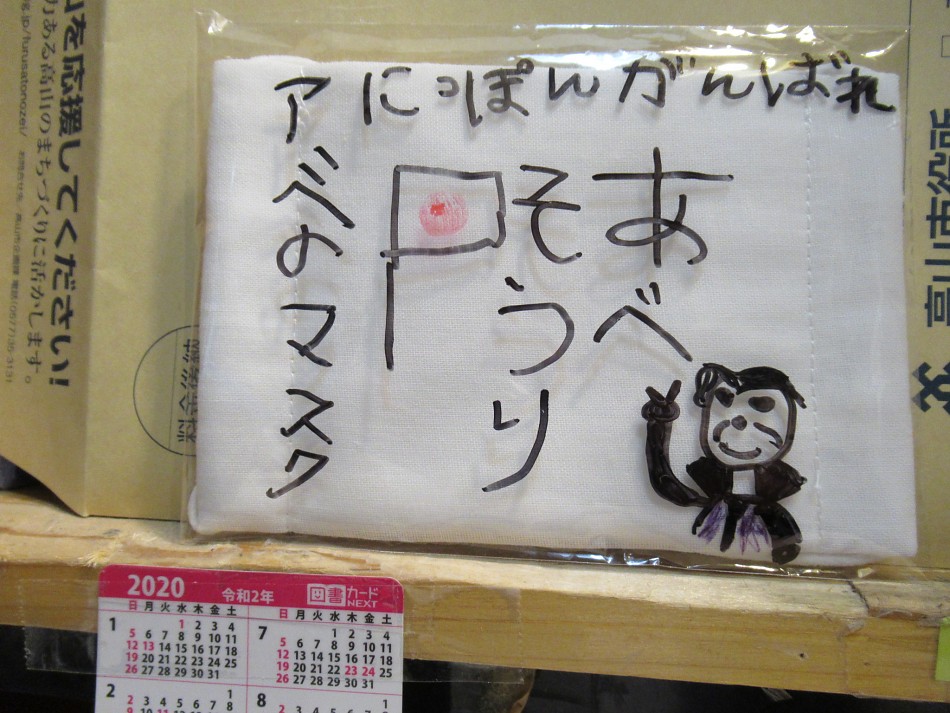 にっぽんがんばれ
あべ
そうり
アベのマスク
山を応援してください!
力ある高山のまちづくりに活かします。
rg.jp/furusatonozei/
高山市役所
2020 令和2年 図書カード NEXT
日 月 火 水 木 金 土
1
1 2 3 4
5 6 7 8 9 10 11
12 13 14 15 16 17 18
19 20 21 22 23 24 25
26 27 28 29 30 31
日 月 火 水 木 金 土
7
1 2 3 4
5 6 7 8 9 10 11
12 13 14 15 16 17 18
19 20 21 22 23 24 25
26 27 28 29 30 31
2
1
2 3 4 5 6 7 8
8
1